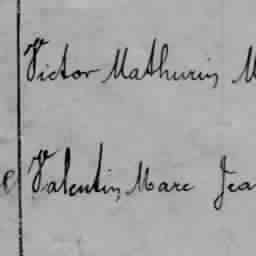 Victor Mathurin M
Valentin Marc Jea